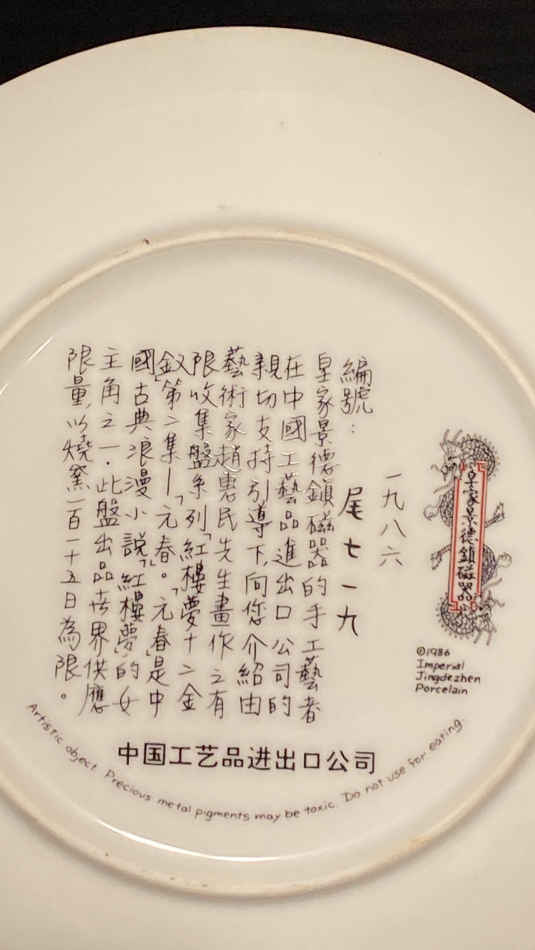 皇家景德鎮磁器
©1986
Imperial
Jingdezhen
Porcelain
一九八六
編號：尾七一九
皇家景德鎮磁器的手工藝者
在中國工藝品進出口公司的
親切支持引導下，向您介紹由
藝術家趙惠民先生畫作之有
限收集盤系列「紅樓夢十二金
釵」第二集—「元春」。「元春」是中
國古典浪漫小說「紅樓夢」的女
主角之一。此盤出品世界供應
限量，以燒窯一百一十五日為限。
中国工艺品进出口公司
Artistic object. Precious metal pigments may be toxic. Do not use for eating.